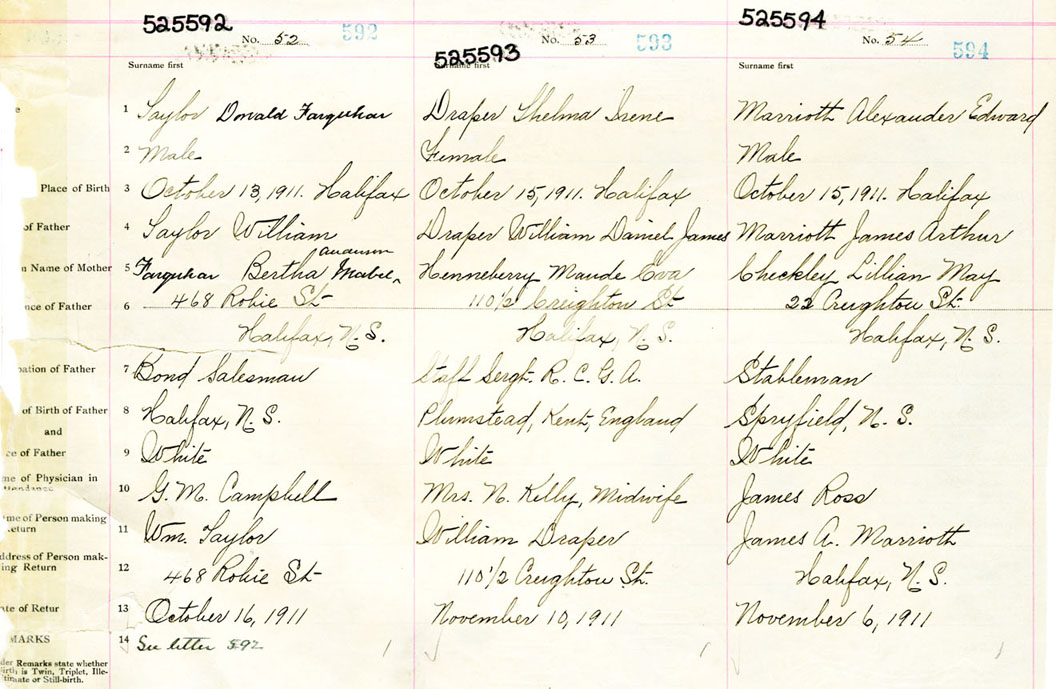 525592
No. 52
592
525593
No. 53
593
525594
No. 54
594
Surname first
Surname first
Surname first
1 Taylor Donald Farquhar
Draper Thelma Irene
Marrioth Alexander Edward
2 Male
Female
Male
Place of Birth 3 October 13, 1911. Halifax
October 15, 1911. Halifax
October 15, 1911. Halifax
of Father 4 Taylor William
Draper William Daniel James
Marrioth James Arthur
Name of Mother 5 Farquhar Bertha Mabel
Henneberry Maude Eva
Checkley Lillian May
nce of Father 6 468 Robie St
Halifax, N. S.
110 1/2 Creighton St
Halifax, N. S.
22 Creighton St.
Halifax, N. S.
pation of Father 7 Bond Salesman
Staff Sergt. R. C. G. A.
Stableman
of Birth of Father 8 Halifax, N. S.
Plumstead, Kent, England
Spryfield, N. S.
and
ce of Father 9 White
White
White
me of Physician in
10 G. M. Campbell
Mrs. N. Kelly, Midwife
James Ross
me of Person making
eturn 11 Wm. Taylor
William Draper
James A. Marrioth
ddress of Person mak-
ing Return 12 468 Robie St
110 1/2 Creighton St.
Halifax, N. S.
te of Retur 13 October 16, 1911
November 10, 1911
November 6, 1911
MARKS 14 See letter 592
der Remarks state whether
irth is Twin, Triplet, Ille-
timate or Still-birth.